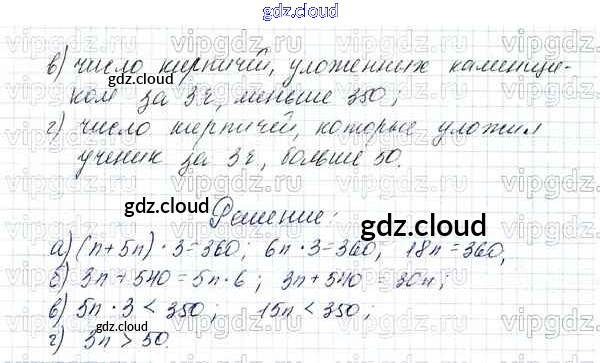 gdz.cloud
в) число кирпичей, уложенных каменщи-
gdz.cloud
ком за 3 ч, меньше 350;
г) число кирпичей, которые уложил
ученик за 3 ч, больше 50.
gdz.cloud
Решение:
gdz.cloud
а) (n+5n) · 3 = 360; 6n · 3 = 360; 18n = 360;
б) 3n + 540 = 5n · 6; 3n + 540 = 30n;
в) 5n · 3 < 350; 15n < 350;
gdz.cloud
г) 3n > 50.